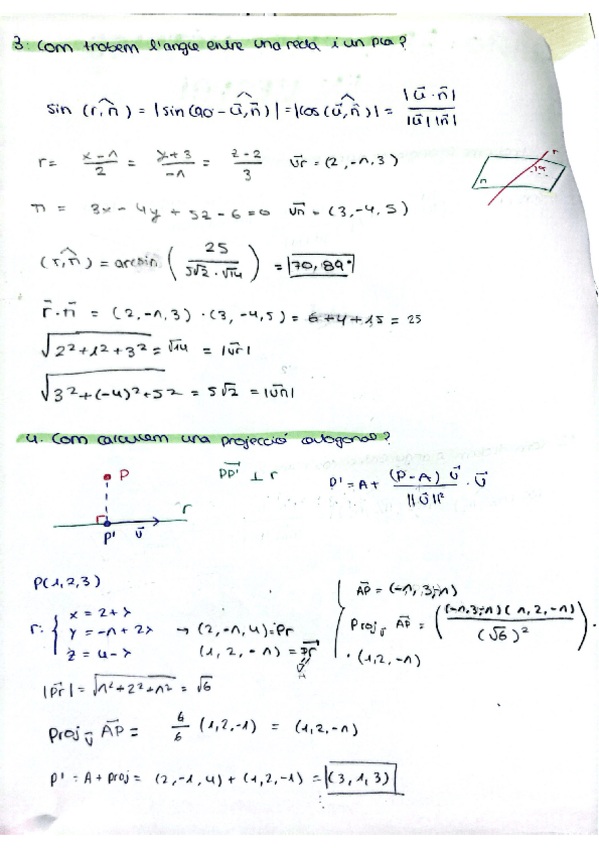 3. Com trobem l'angle entre una recta i un pla?
sin (r,π) = |sin(90 - u,n)| = |cos(u,n)| = |u⃗ · n⃗| / |u⃗| |n⃗|
r = (x-1)/2 = (y+3)/-1 = (z-2)/3 v⃗r = (2, -1, 3)
r
α
π
π = 3x - 4y + 5z - 6 = 0 v⃗n = (3, -4, 5)
(r,π) = arcsin (25 / 5√2 · √14) = 70,89°
r⃗ · n⃗ = (2, -1, 3) · (3, -4, 5) = 6 + 4 + 15 = 25
√2² + 1² + 3² = √14 = |v⃗r|
√3² + (-4)² + 5² = 5√2 = |v⃗n|
4. Com calculem una projecció ortogonal?
P
PP'⃗ ⊥ r
P' = A + (P - A) u⃗ / ||u⃗||² · u⃗
r
P' u⃗
P(1, 2, 3)
AP⃗ = (-1, 3, -1)
r: { x = 2 + λ
y = -1 + 2λ → (2, -1, 4) = Pr
z = 4 - λ (1, 2, -1) = pr⃗
Proj u AP⃗ = ((-1, 3, -1)(1, 2, -1) / (√6)²) ·
· (1, 2, -1)
|pr⃗| = √1² + 2² + 1² = √6
Proj u AP⃗ = 6/6 (1, 2, -1) = (1, 2, -1)
P' = A + proj = (2, -1, 4) + (1, 2, -1) = (3, 1, 3)